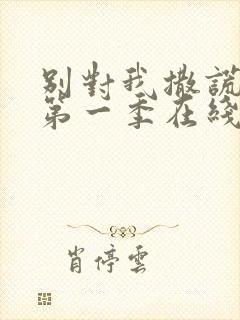 別對我撒謊
第一季在綫
肖停雲